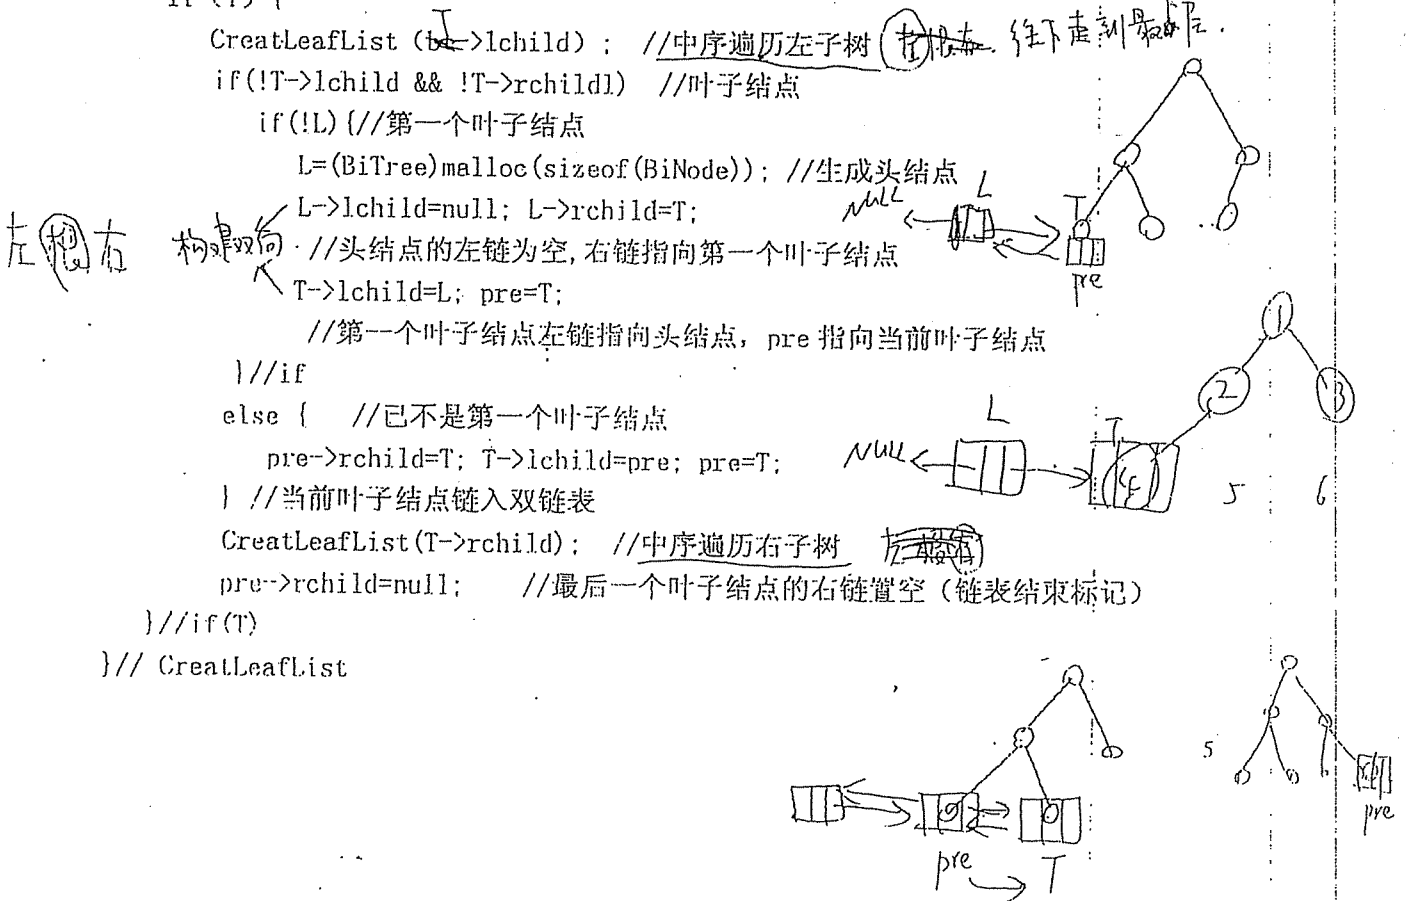 if (T) {
CreatLeafList (T->lchild) ; //中序遍历左子树 往下走到最底层.
if(!T->lchild && !T->rchildl) //叶子结点
if(!L){//第一个叶子结点
L=(BiTree)malloc(sizeof(BiNode)); //生成头结点
L->lchild=null; L->rchild=T;
//头结点的左链为空,右链指向第一个叶子结点
T->lchild=L; pre=T;
//第一个叶子结点左链指向头结点，pre 指向当前叶子结点
}//if
else { //已不是第一个叶子结点
pre->rchild=T; T->lchild=pre; pre=T;
} //当前叶子结点链入双链表
CreatLeafList(T->rchild); //中序遍历右子树
pre->rchild=null; //最后一个叶子结点的右链置空（链表结束标记）
}//if(T)
}// CreatLeafList
左根右 构建双向
NULL L T
pre
1
2 3
NULL L T
4 5 6
pre T
5
pre